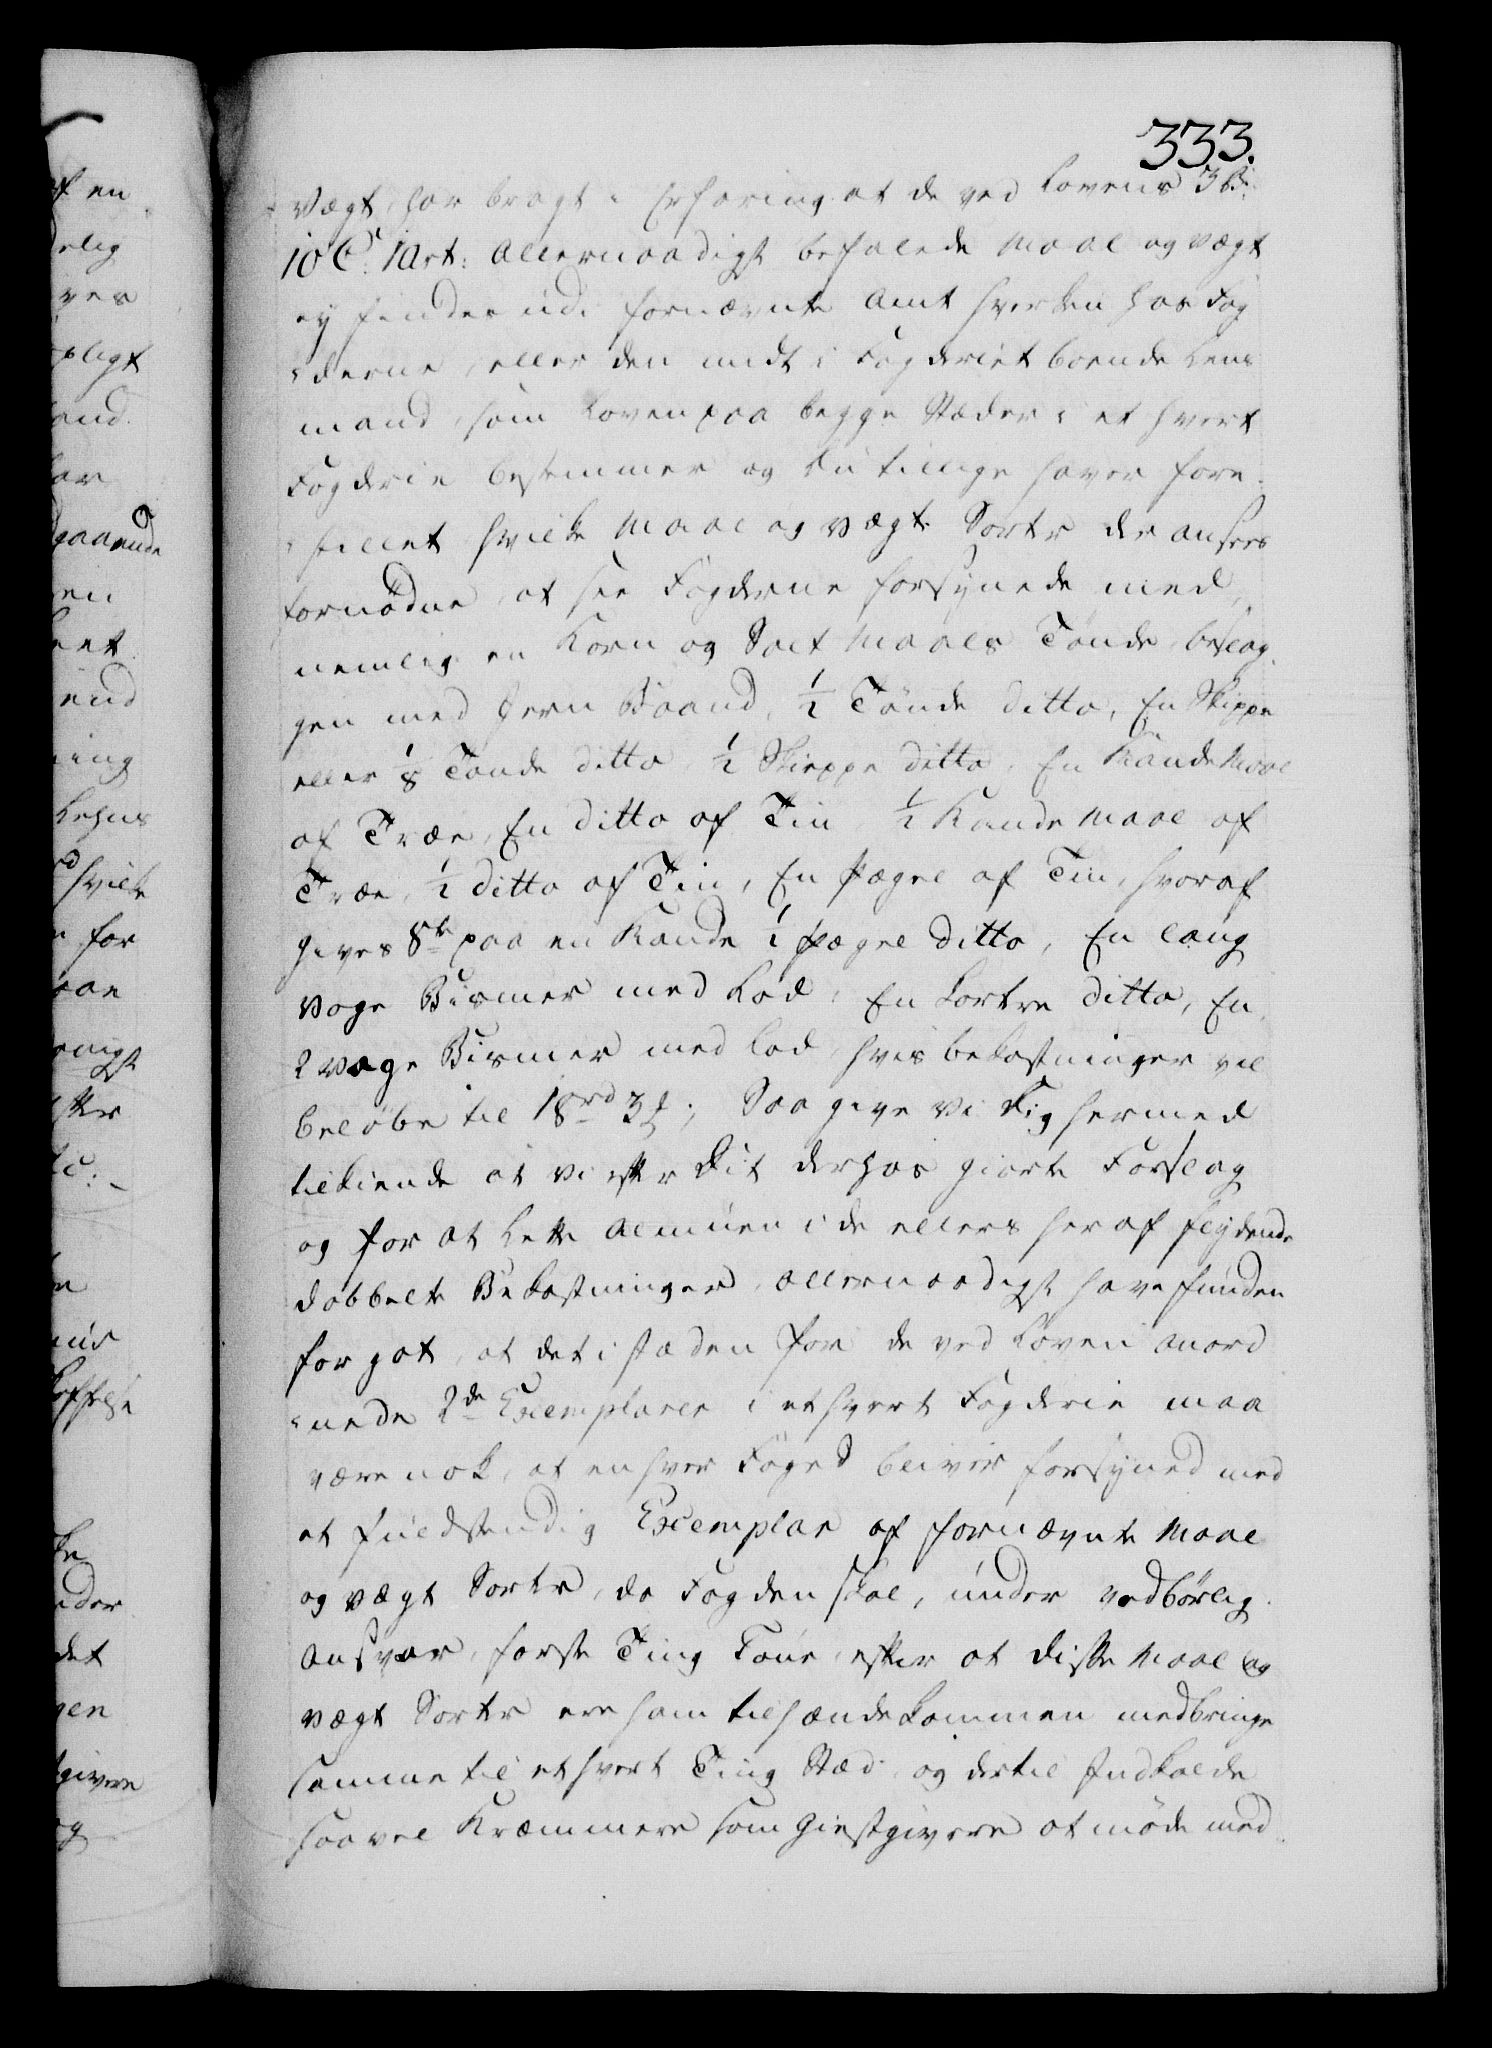 333.
Vægt, har bragt i Erfaring at de ved Lovens 3 B:
10 C: 1 Art: allernaadigst befalede Maal og Vægt
ey findes udi fornævnte Amt hverken hos Fog
:derne, eller den midt i Fogderiet boende Lens
mand, som Loven paa begge Stæder i et hvert
Fogderie bestemmer og Du tillige haver fore
:stillet hvilke Maal og Vægt Sorter der ansees
fornødne at see Fogderne forsynede med,
nemlig en Korn og Salt Maals Tønde, beslag
gen med Jern Baand, ½ Tønde ditto, En Skippe
eller ⅛ Tønde ditto, ½ Skieppe ditto, En Kande Maal
af Træe, En ditto af Tin, ½ Kande Maal af
Træe, ½ ditto af Tin, En Pægel af Tin, hvoraf
gives 8te paa en Kande ½ Pægel ditto, En lang
Voge Bismer med Lod, En kortre ditto, En
2 Voge Bismer med Lod, hvis bekostninger vil
beløbe til 18 rd 3 ß; Saa give Vi Dig hermed
tilkiende at Vi efter Dit derhos giorte Forslag
og for at lette Almüen i de ellers heraf flydende
dobbelte Bekostninger, allernaadigst have funden
for got, at det i stæden for de ved Loven anord
:nede 2de Exemplarer i et hvert Fogderie maa
være nok, at enhver Foged bliver forsyned med
et fuldstendig Exemplar af fornævnte Maal
og Vægt Sorter, da Fogden skal, under vedbørlig
Ansvar, første Ting Tour, efter at disse Maal og
Vægt Sorter ere ham tilhændekommen medbringe
samme til et hvert Ting Stæd og dertil Indkalde
saavel Kræmmere som Giestgivere at møde med